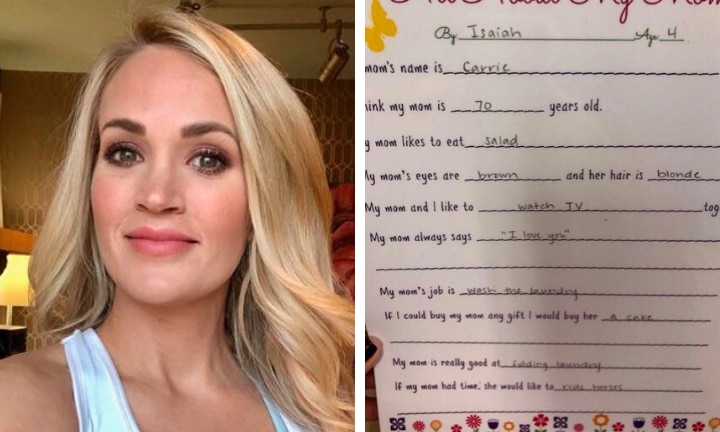 My Mom
By Isaiah Age 4
mom's name is Carrie
ink my mom is 70 years old.
y mom likes to eat salad
My mom's eyes are brown and her hair is blonde
My mom and I like to watch TV tog
My mom always says "I love you"
My mom's job is wash the laundry
If I could buy my mom any gift I would buy her a cake
My mom is really good at folding laundry
If my mom had time, she would like to ride horses